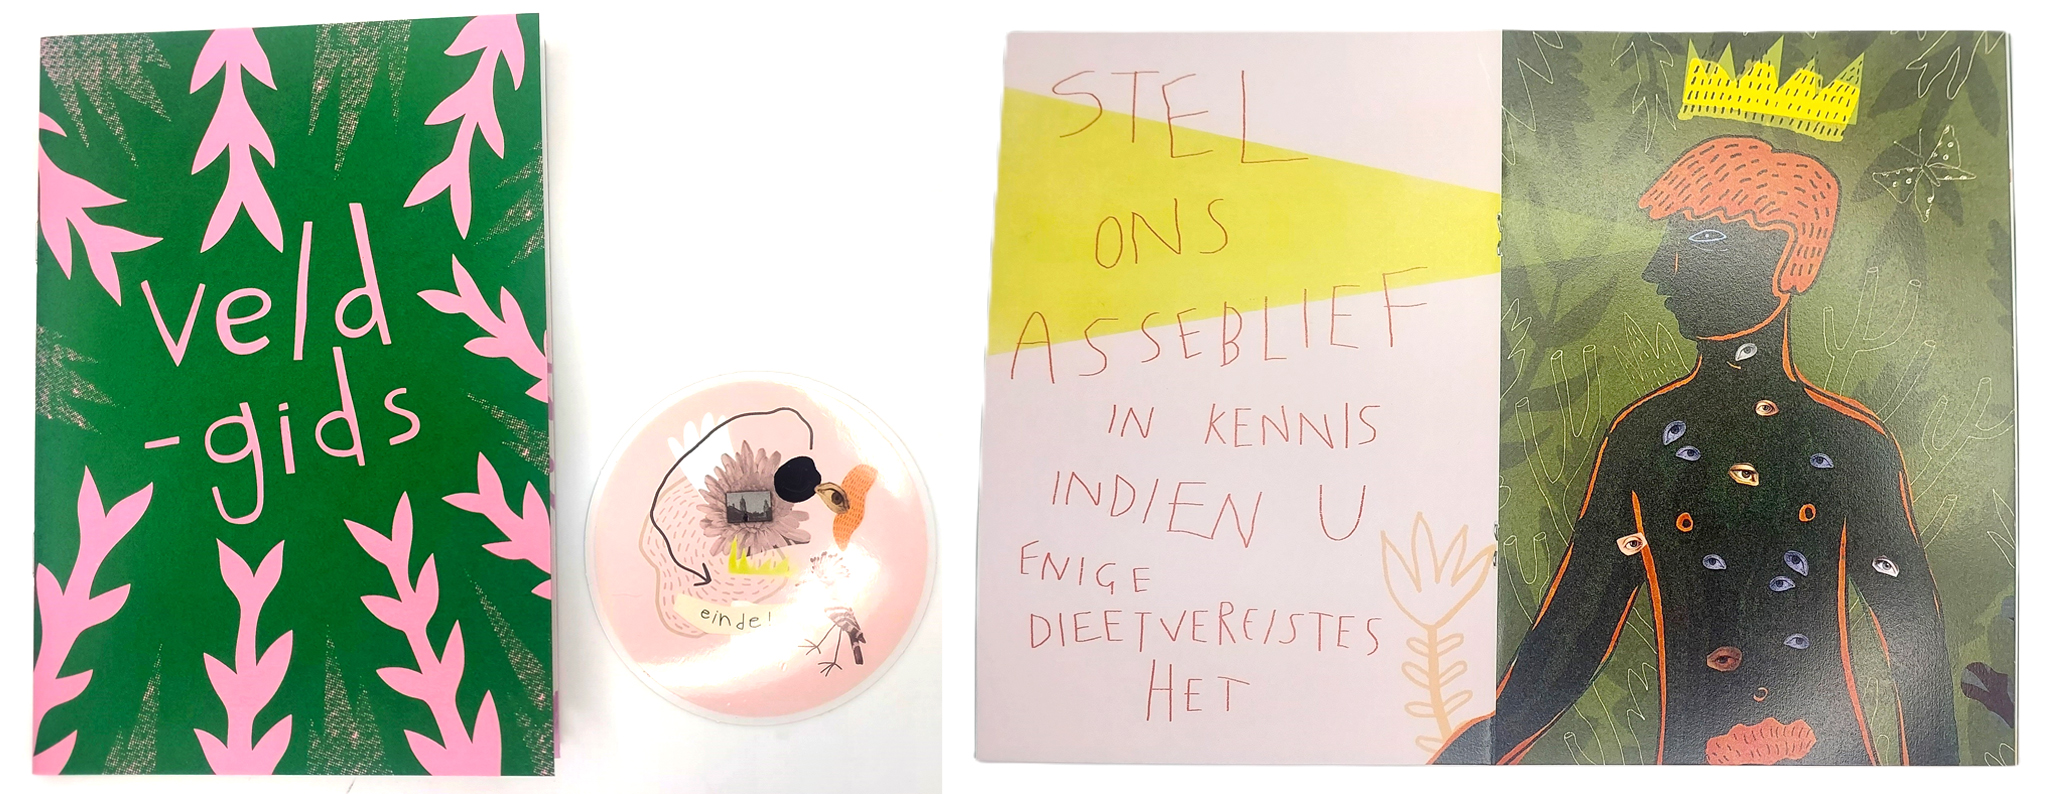 veld
-gids
einde!
STEL
ONS
ASSEBLIEF
IN KENNIS
INDIEN U
ENIGE
DIEETVEREISTES
HET